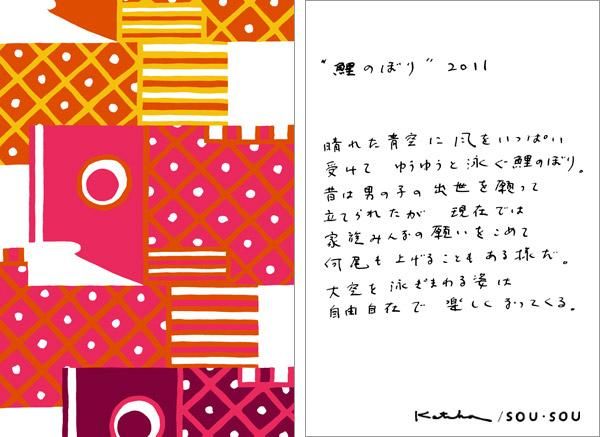 "鯉のぼり" 2011
晴れた青空に風をいっぱい
受けて ゆうゆうと泳ぐ鯉のぼり。
昔は男の子の出世を願って
立てられたが 現在では
家族みんなの願いをこめて
何尾も上げることもある様だ。
大空を泳ぎまわる姿は
自由自在で 楽しくなってくる。
Katsuji / SOU・SOU